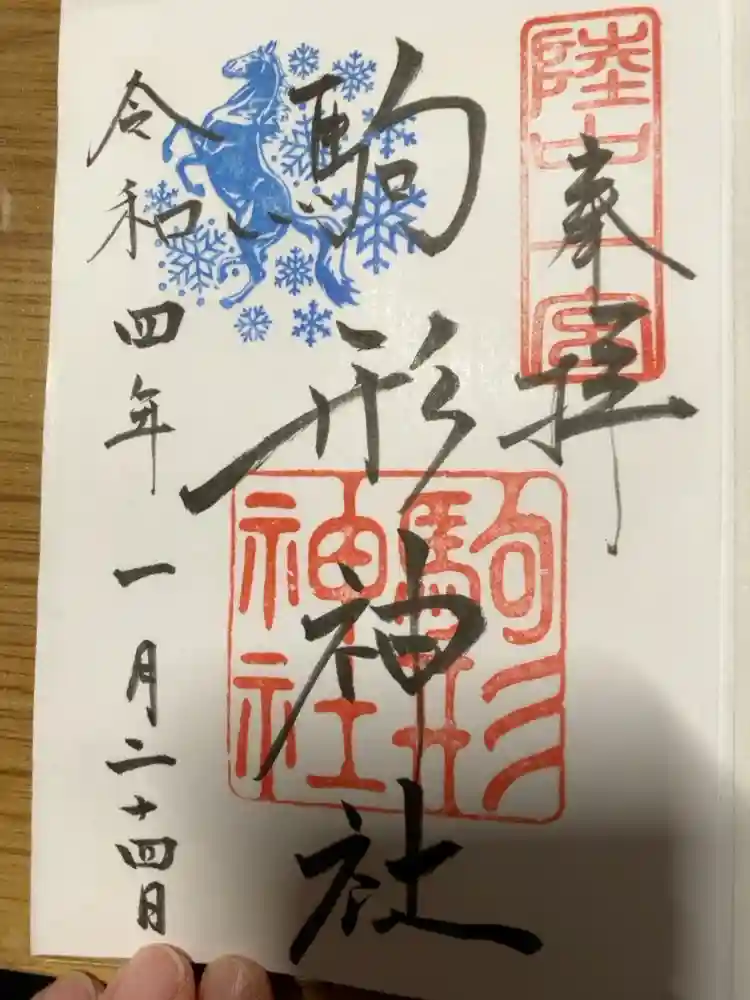 奉拝
陸中一宮
駒形神社
駒形神社
令和四年一月二十四日